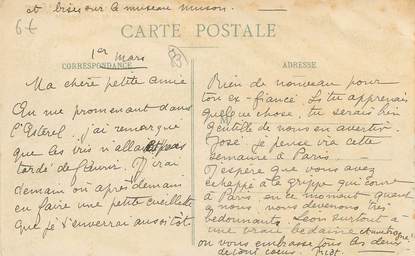 et bises sur le museau
6 f
CARTE POSTALE
1er mars
CORRESPONDANCE
ADRESSE
Ma chère petite amie
En me promenant dans
l'Esterel, j'ai remarqué
que les iris n'allaient pas
tardé de fleurir. J'irai
demain ou après demain
en faire une petite cueillette
que je t'enverrai aussitôt.
Rien de nouveau pour
ton ex-fiancé. Si tu apprenais
quelque chose, tu serais bien
gentille de nous en avertir.
José, je pense, ira cette
semaine à Paris
J'espère que vous avez
échappé à la grippe qui court
à Paris, en ce moment. Quant
à nous, nous devenons très
bedonnants. Léon surtout a
une vraie bedaine
on vous embrasse tous les deux
de tout coeur.